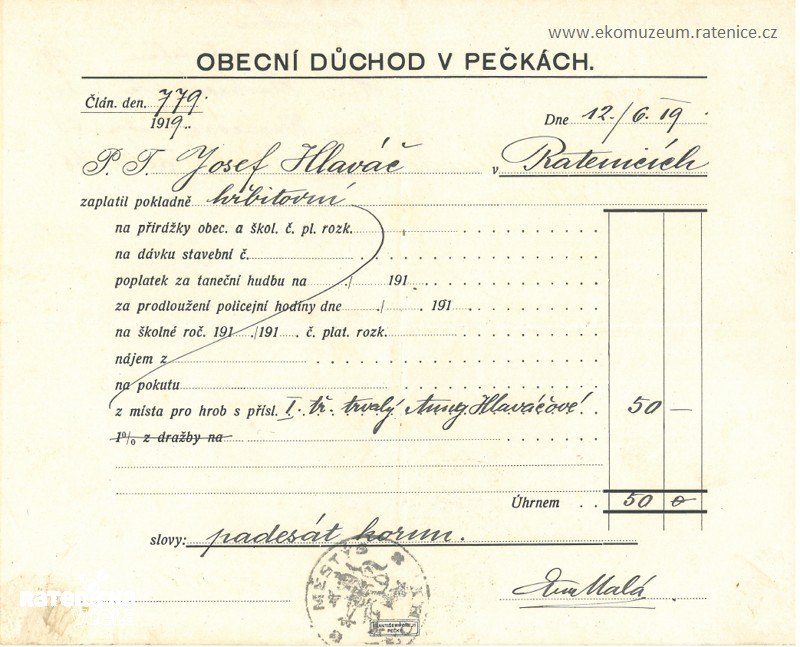 www.ekomuzeum.ratenice.cz
OBECNÍ DŮCHOD V PEČKÁCH.
Člán. den. 779.
1919..
Dne 12./6. 19.
P. T. Josef Hlaváč v Ratenicích
zaplatil pokladně hřbitovní
na přirážky obec. a škol. č. pl. rozk.
na dávku stavební č.
poplatek za taneční hudbu na ./ 191
za prodloužení policejní hodiny dne ./ . 191
na školné roč. 191 ./191 . č. plat. rozk.
nájem z
na pokutu
z místa pro hrob s přísl. I. tř. trvalý Anny Hlaváčové. 50 —
1% z dražby na
Úhrnem . . 50 0
slovy: padesát korun.
MĚSTYS
RATENICE
Malá